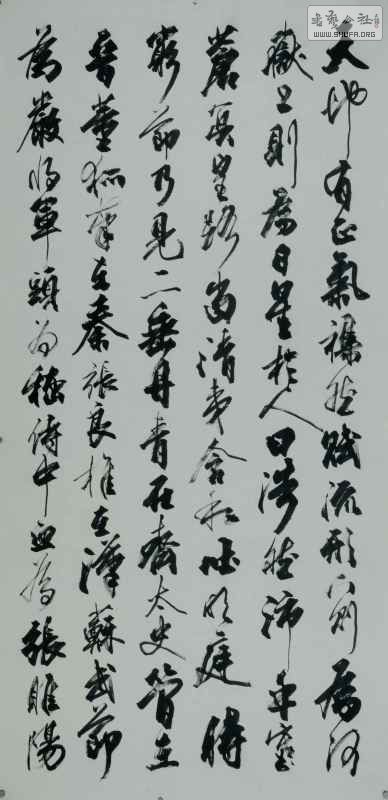 天地有正氣雜然賦流形下則為河
嶽上則為日星於人曰浩然沛乎塞
蒼冥皇路當清夷含和吐明庭時
窮節乃見一一垂丹青在齊太史簡在
晉董狐筆在秦張良椎在漢蘇武節
為嚴將軍頭為嵇侍中血為張睢陽
書藝公社
WWW.SHUFA.ORG